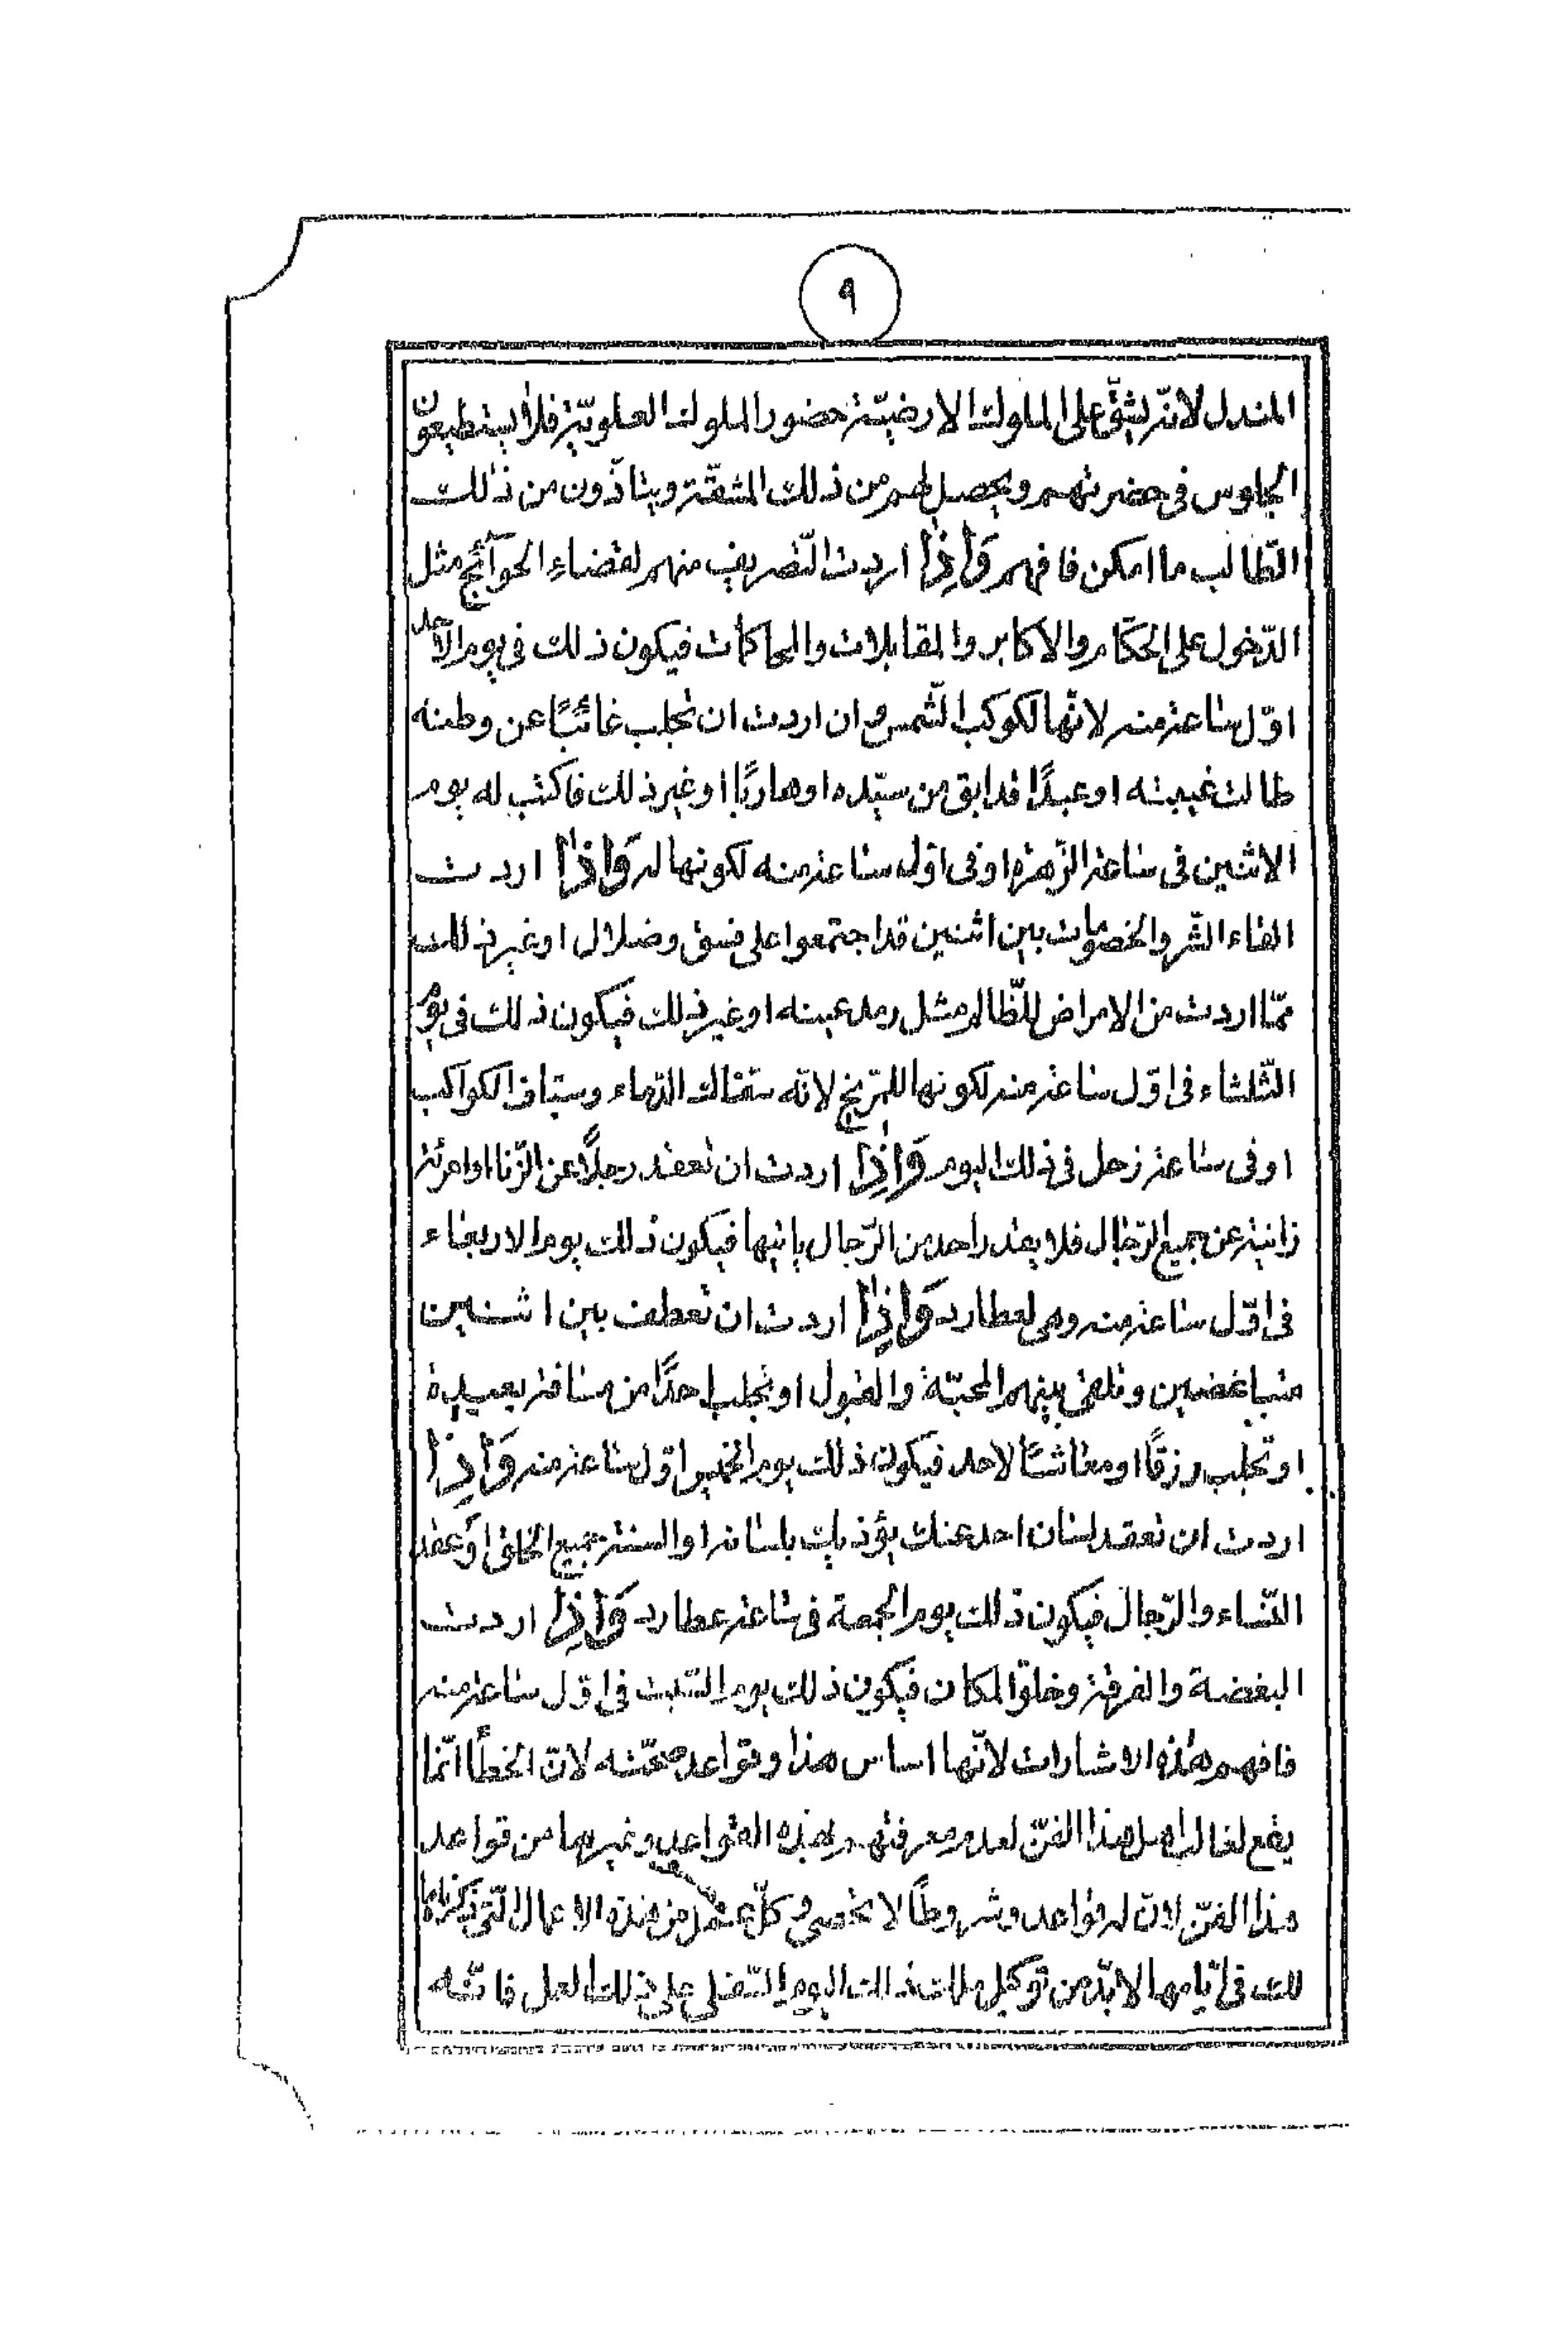 ٩
المندل لانّه يشقّ على الملوك الارضيّة حضور الملوك العلويّة فلا يستطيعون
الجلوس في حضرتهم ويحصل لهم من ذلك المشقّة ويتأذّون من ذلك
الطّالب ما امكن فافهم وَاِذَا اردت التّصريف منهم لقضاءِ الحوآئج مثل
الدّخول على الحكّام والاكابر والمقابلات والمحاكمات فيكون ذلك في يوم الاحد
اوّل ساعة منه لانّها لكوكب الشّمس وان اردت ان تجلب غائبًا عن وطنه
طالت غيبته او عبدًا قد ابق من سيّده او هاربًا او غير ذلك فاكتب له يوم
الاثنين في ساعة الزّهرة او في اوّل ساعة منه لكونها له وَاِذَا اردت
القاء الشّر والخصومات بين اثنين قد اجتمعوا على فسق وضلال او غير ذلك
ممّا اردت من الامراض للظّالم مثل رمد عينه او غير ذلك فيكون ذلك في يوم
الثّلثاء في اوّل ساعة منه لكونها للمرّيخ لانّه سفّاك الدّماء وسيّاف الكواكب
او في ساعة زحل في ذلك اليوم وَاِذَا اردت ان تعقد رجلًا عن الزّنا او امرئة
زانية عن جميع الرّجال فلا يقدر احد من الرّجال يأتيها فيكون ذلك يوم الاربعاء
في اوّل ساعة منه وهي لعطارد وَاِذَا اردت ان تعطف بين اثنين
متباغضين وتلقي بينهم المحبّة والقبول او تجلب احدًا من مسافة بعيدة
او تجلب رزقًا او معاشًا لاحد فيكون ذلك يوم الخميس اوّل ساعة منه وَاِذَا
اردت ان تعقد لسان احد عنك يؤذيك بلسانه او السنة جميع الخلق او عقد
النّساء والرّجال فيكون ذلك يوم الجمعة في ساعة عطارد وَاِذَا اردت
البغضة والفرقة وخلوّ المكان فيكون ذلك يوم السّبت في اوّل ساعة منه
فافهم هذه الاشارات لانّها اساس هذا وقواعد صحّته لانّ الخطأ انّما
يقع لغالب اهل هذا الفنّ لعدم معرفتهم بهذه القواعد وغيرها من قواعد
هذا الفنّ لانّ له قواعد وشروطًا لا تحصى وكلّ عمل من هذه الاعمال الّتي ذكرناها
لك في ايّامها لابدّ من توكيل ملك ذلك اليوم على ذلك العمل فانّه